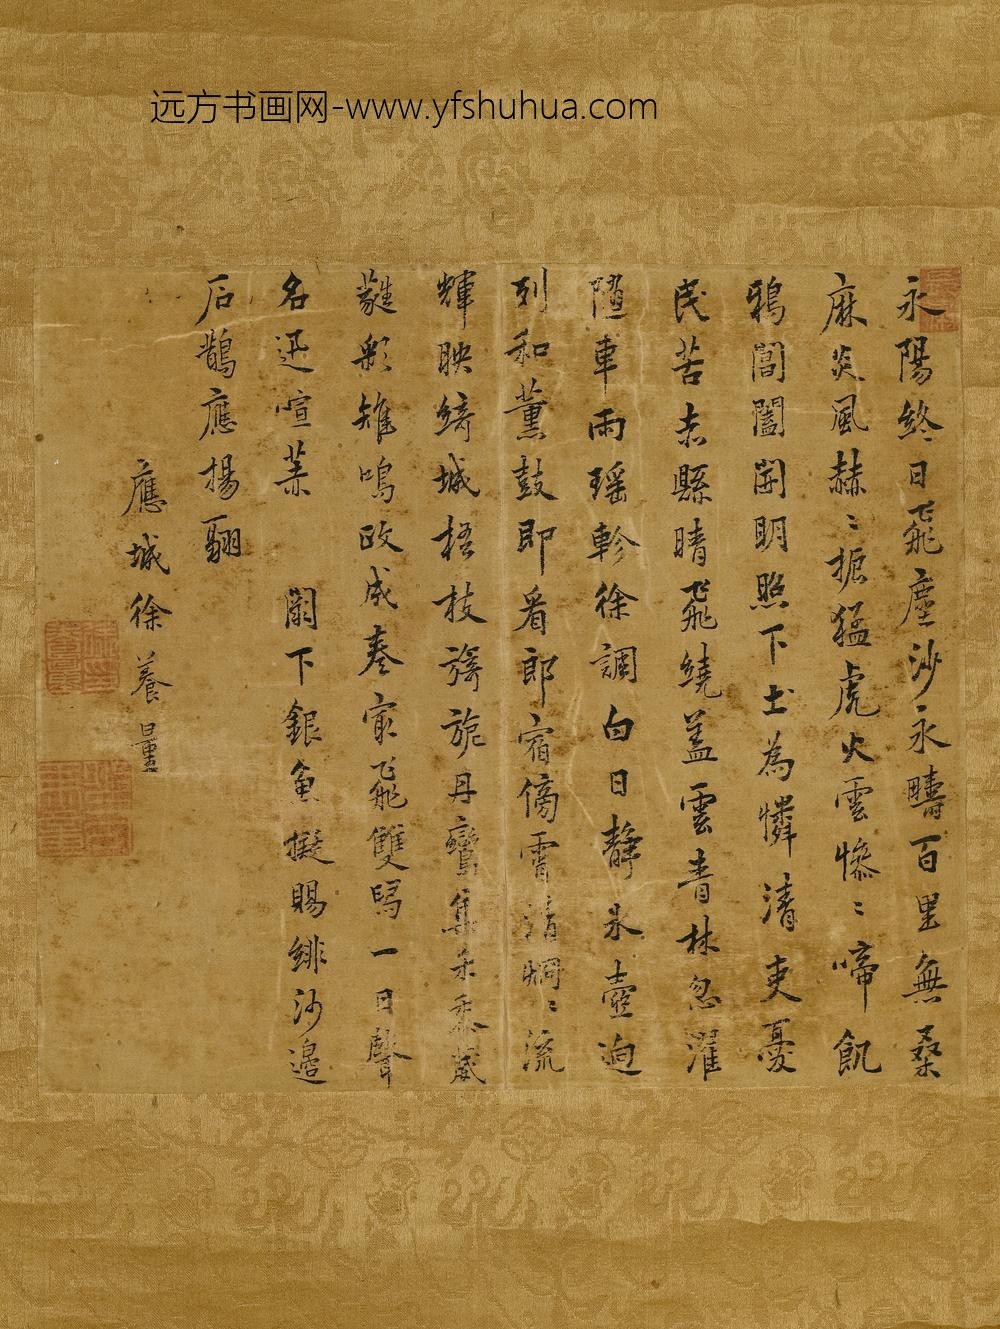 远方书画网-www.yfshuhua.com
永陽終日飛塵沙永疇百里無桑
麻炎風赫〻振猛虎火雲慘〻啼飢
鴉閶闔開明照下土為憐清吏憂
民苦赤縣晴飛繞蓋雲青林忽濯
隨車雨瑤軫徐調白日靜氷壺迥
列和薰鼓即看郎宿傍霄清烱〻流
輝映綺城梧枝旖旎丹鸞集禾黍葳
蕤彩雉鳴政成奏寂飛雙舄一日聲
名迅喧業 闕下銀魚擬賜緋沙邉
后鵲應揚翮
應城徐養量